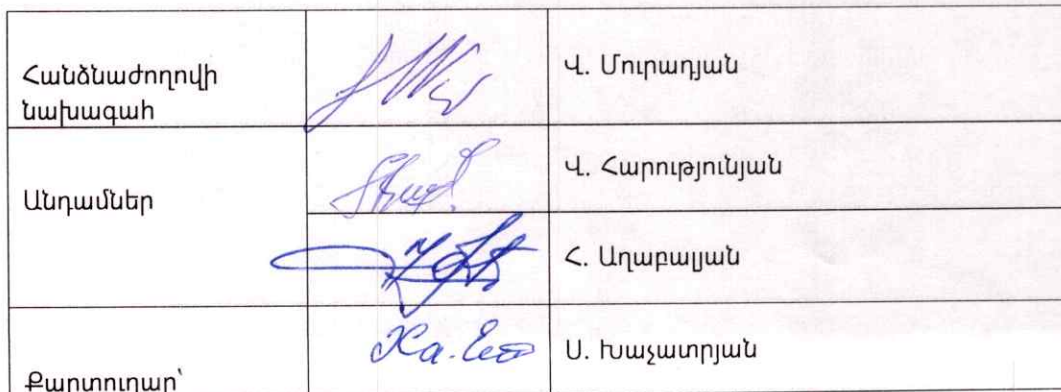 Հանձնաժողովի
նախագահ
Վ. Մուրադյան
Անդամներ
Վ. Հարությունյան
Հ. Աղաբալյան
Քարտուղար՝
Ս. Խաչատրյան